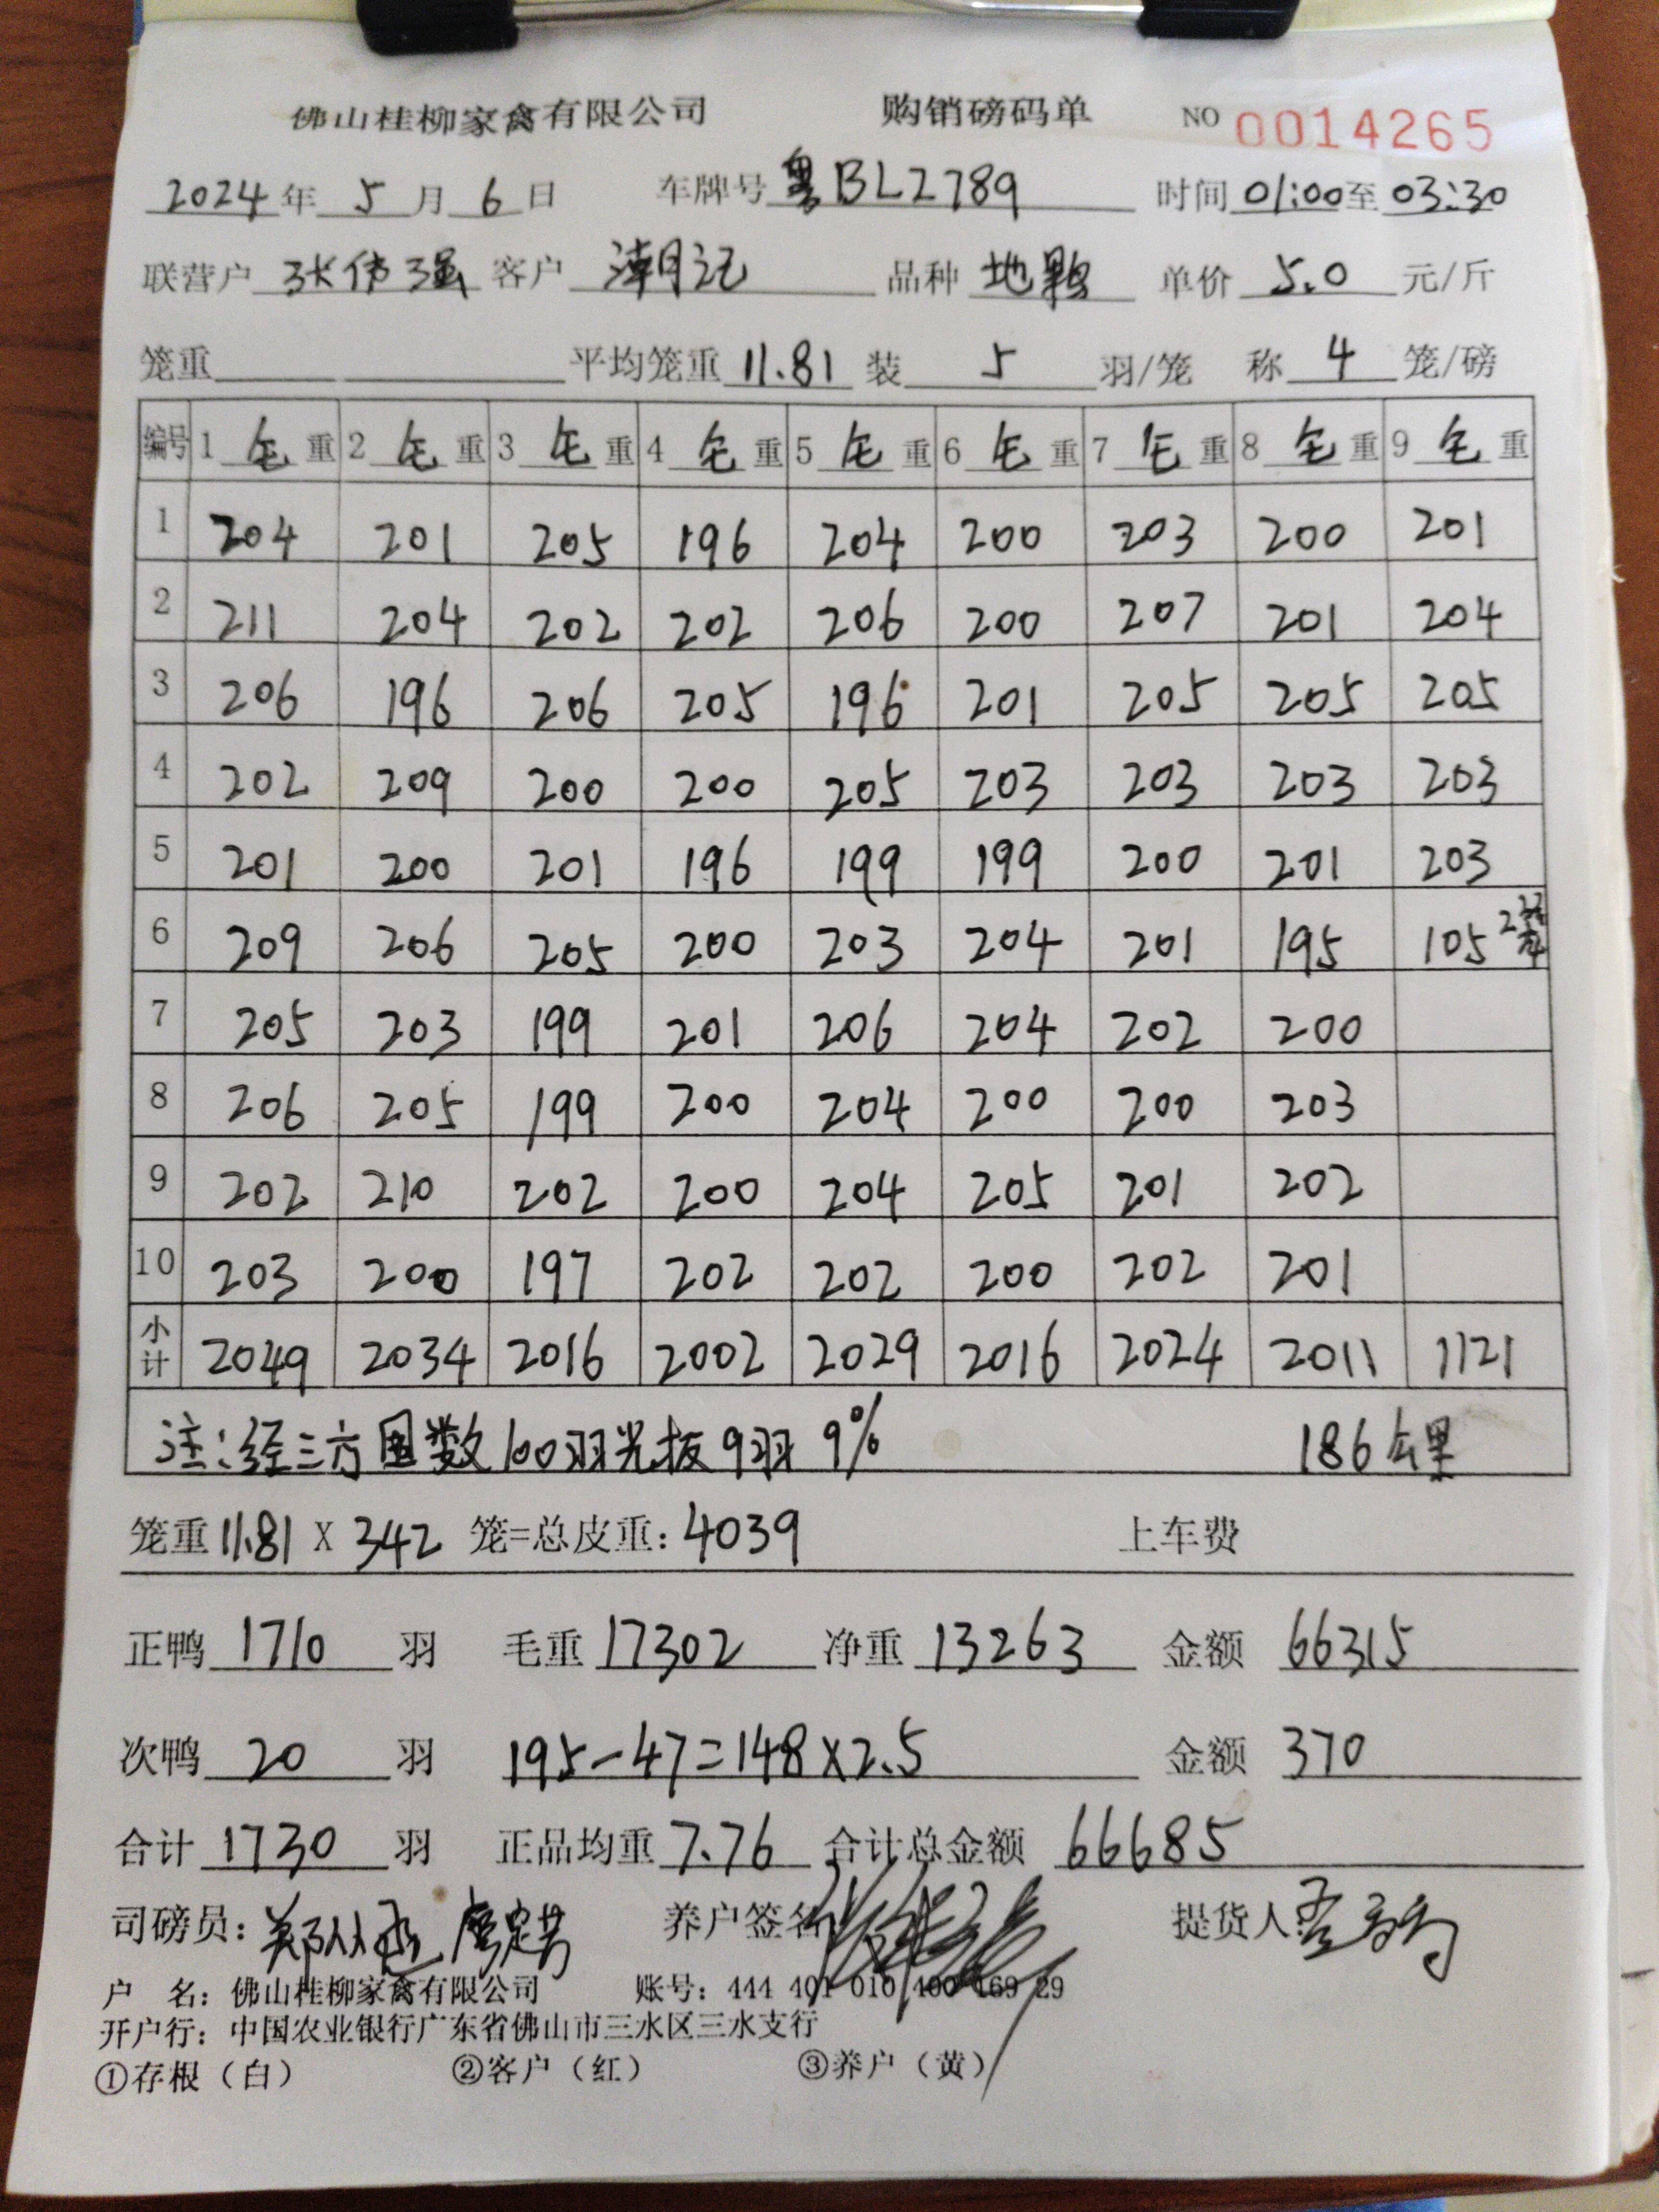 佛山桂柳家禽有限公司 购销磅码单 NO 0014265
2024年 5月 6日 车牌号 粤BL2789 时间 01:00至 03:30
联营户 张伟强 客户 潮记 品种 地 单价 5.0 元/斤
笼重 平均笼重 11.81 装 5 羽/笼 称 4 笼/磅
编号 1 毛重 2 毛重 3 毛重 4 毛重 5 毛重 6 毛重 7 毛重 8 毛重 9 毛重
1 204 201 205 196 204 200 203 200 201
2 211 204 202 202 206 200 207 201 204
3 206 196 206 205 196 201 205 205 205
4 202 209 200 200 205 203 203 203 203
5 201 200 201 196 199 199 200 201 203
6 209 206 205 200 203 204 201 195 105 2
7 205 203 199 201 206 204 202 200
8 206 205 199 200 204 200 200 203
9 202 210 202 200 204 205 201 202
10 203 200 197 202 202 200 202 201
小计 2049 2034 2016 2002 2029 2016 2024 2011 1121
注:经三方 数100羽光板9羽 9% 186公里
笼重 11.81 X 342 笼=总皮重: 4039 上车费
正鸭 1710 羽 毛重 17302 净重 13263 金额 66315
次鸭 20 羽 195-47=148×2.5 金额 370
合计 1730 羽 正品均重 7.76 合计总金额 66685
司磅员: 养户签名: 提货人:
户 名: 佛山桂柳家禽有限公司 账号: 444 401 010 400 169 29
开户行: 中国农业银行广东省佛山市三水区三水支行
①存根(白) ②客户(红) ③养户(黄)